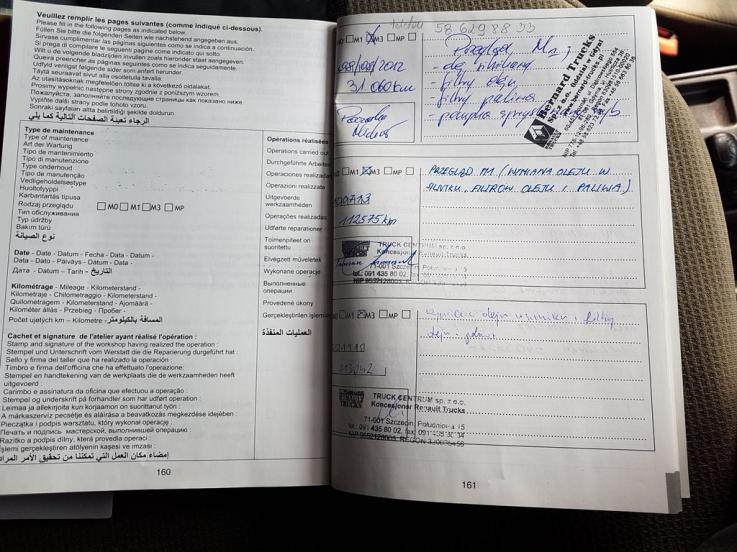 Veuillez remplir les pages suivantes (comme indiqué ci-dessous).
Please fill in the following pages as indicated below.
Füllen Sie bitte die folgenden Seiten wie nachstehend angegeben aus.
Sirvase cumplimentar las páginas siguientes como se indica a continuación.
Si prega di compilare le seguenti pagine come indicato qui sotto.
Wilt u de volgende bladzijden invullen zoals hieronder staat aangegeven.
Queira preencher as páginas seguintes como se indica seguidamente.
Udfyld venligst følgende sider som anført herunder.
Täytä seuraavat sivut alla osoitetulla tavalla.
Az utasításoknak megfelelően töltse ki a következő oldalakat.
Prosimy wypełnić następne strony zgodnie z poniższym wzorem.
Пожалуйста, заполняйте последующие страницы как показано ниже
Vyplňte další strany podle tohoto vzoru.
Sonraki sayfaları alta belirtildiği şekilde doldurun.
الرجاء تعبئة الصفحات التالية كما يلي
Type de maintenance
Type of maintenance
Art der Wartung
Tipo de mantenimiento
Tipo di manutenzione
Type onderhoud
Tipo de manutenção
Vedligeholdelsestype
Huoltotyyppi
Karbantartás típusa
Rodzaj przeglądu M0 M1 M3 MP
Тип обслуживания
Typ údržby
Bakım türü
نوع الصيانة
Opérations réalisées
Operations carried out
Durchgeführte Arbeiten
Operaciones realizadas
Operazioni realizzate
Uitgevoerde
werkzaamheden
Operações realizadas
Udførte reparationer
Toimenpiteet on
suoritettu
Elvégzett műveletek
Wykonane operacje
Выполненные
операции
Provedené úkony
Gerçekleştirilen işlemler
العمليات المنفذة
Date - Date - Datum - Fecha - Data - Datum -
Data - Dato - Päiväys - Dátum - Data -
Дата - Datum - Tarih - التاريخ
Kilométrage - Mileage - Kilometerstand -
Kilometraje - Chilometraggio - Kilometerstand -
Quilometragem - Kilometerstand - Ajomäärä -
Kilométer állás - Przebieg - Пробег -
Počet ujetých km - Kilometre - المسافة بالكيلومتر
Cachet et signature de l'atelier ayant réalisé l'opération :
Stamp and signature of the workshop having realized the operation :
Stempel und Unterschrift vom Werstatt die die Repariерung durgeführt hat :
Sello y firma del taller que ha realizado la operación :
Timbro e firma dell'officina che ha effettuato l'operazione :
Stempel en handtekening van de werkplaats die de werkzaamheden heeft
uitgevoerd :
Carimbo e assinatura da oficina que efectuou a operação :
Stempel og underskrift på forhandler som har udført operation :
Leimaa ja allekirjoita kun korjaamon on suorittanut työn :
A márkaszerviz pecsétje és aláírása a beavatkozás megkezdése idejében :
Pieczątka i podpis warsztatu, który wykonał operację :
Печать и подпись мастерской, выполнившей операции :
Razítko a podpis dílny, která provedla operaci :
İşlemi gerçekleştiren atölyenin kaşesi ve imzası :
160
telefon 58 629 88 33
M0 M1 M3 MP
31 060 km
Przegląd M1;
- filtry oleju
- filtry paliwa
Bernard Trucks
Sp. z o.o.
M0 M1 M3 MP
112575 km
PRZEGLĄD M1 (WYMIANA OLEJU W
SILNIKU, FILTRÓW OLEJU I PALIWA).
TRUCK CENTRUM sp. z o.o.
Koncesjoner Renault Trucks
71-001 Szczecin, Południowa 15
tel. 091 435 80 02,
M0 M1 M3 MP
TRUCK CENTRUM sp. z o.o.
Koncesjoner Renault Trucks
71-001 Szczecin, Południowa 15
tel. 091 435 80 02,
161